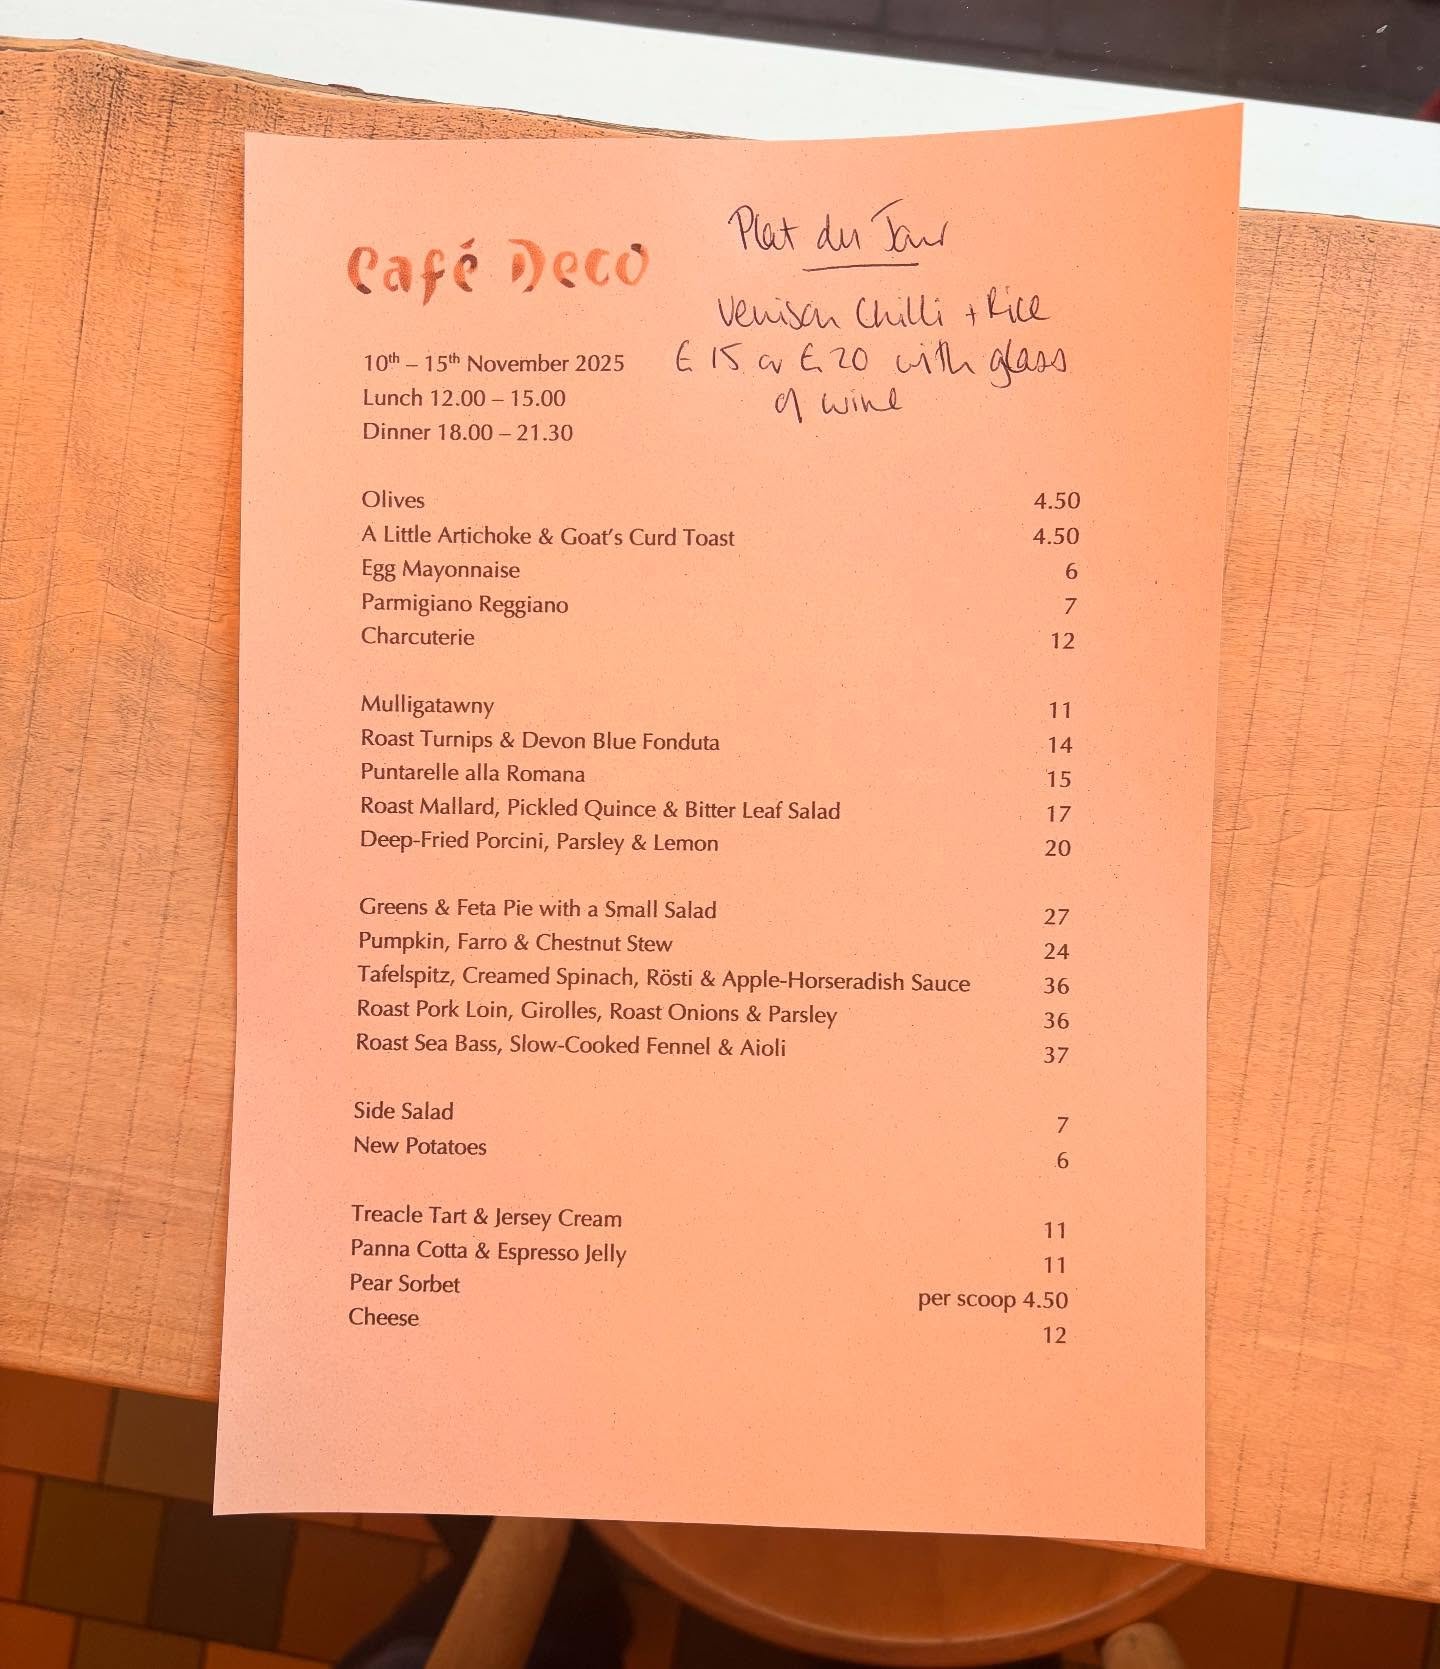 Café Deco
Plat du Jour
Venison Chilli + Rice
£15 or £20 with glass
of wine
10th – 15th November 2025
Lunch 12.00 – 15.00
Dinner 18.00 – 21.30
Olives 4.50
A Little Artichoke & Goat's Curd Toast 4.50
Egg Mayonnaise 6
Parmigiano Reggiano 7
Charcuterie 12
Mulligatawny 11
Roast Turnips & Devon Blue Fonduta 14
Puntarelle alla Romana 15
Roast Mallard, Pickled Quince & Bitter Leaf Salad 17
Deep-Fried Porcini, Parsley & Lemon 20
Greens & Feta Pie with a Small Salad 27
Pumpkin, Farro & Chestnut Stew 24
Tafelspitz, Creamed Spinach, Rösti & Apple-Horseradish Sauce 36
Roast Pork Loin, Girolles, Roast Onions & Parsley 36
Roast Sea Bass, Slow-Cooked Fennel & Aioli 37
Side Salad 7
New Potatoes 6
Treacle Tart & Jersey Cream 11
Panna Cotta & Espresso Jelly 11
Pear Sorbet per scoop 4.50
Cheese 12